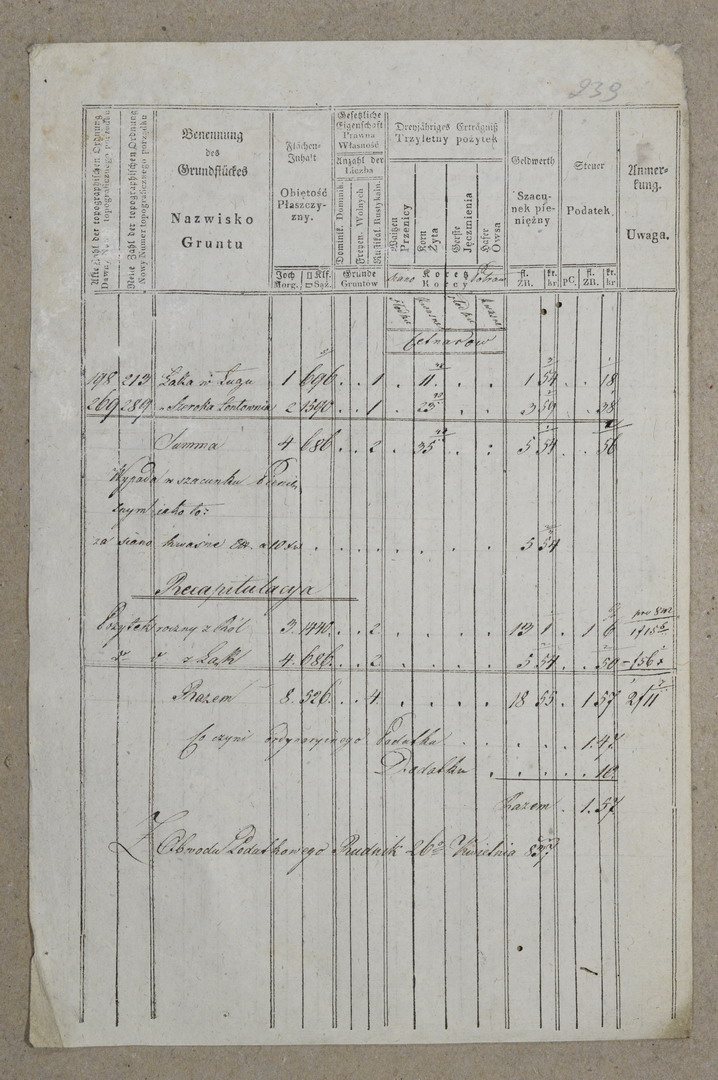 239
Alte Zahl der topographischen Ordnung
Dawny topograficznego porządku
Neue Zahl der topographischen Ordnung
Nowy Numer topograficznego porządku
Benennung
des
Grundstückes
Nazwisko
Gruntu
Flächen-
Inhalt
Objętość
Płaszczy-
zny.
Joch □ Klf.
Morg. □ Sąż.
Gesetzliche
Eigenschaft
Prawna
Własność
Anzahl der
Liczba
Dominik. Dominik.
Freyen. Wolnych
Rustikal. Rustykaln.
Gründe
Gruntów
Dreyjähriges Erträgniß
Trzyletny pożytek
Waitzen
Przenicy
Korn
Żyta
Gerste
Jęczmienia
Hafer
Owsa
Siano Koretz Potraw
Korcy
Geldwerth
Szacu-
nek pie-
niężny
fl. kr.
ZR. kr
Steuer
Podatek
pC. fl. kr.
ZR. kr
Anmer-
kung.
Uwaga.
Cetnarow
198 213 Łaka w Ługu 1 696 . . 1 . 11 . . 1 54 . . 18
269 289 " Szeroka 2 1590 . . 1 . 23 . . 3 59 . . 38
Summa 4 686 . . 2 . 35 . : 5 54 . . 56
Wypada w szacunku Pienię-
żnym jako to:
za siano kwaśne a 10 xr . . . . . . . 5 54
Recapitulacya
Pożytek roczny z Ról 3. 1440. . . 2 . . . . . 13 1 . 1 6
z Łak 4. 686. . . 2 . . . . . 5 54 . . 50
Razem 8. 526. . . 4 . . . . . 18 55 . 1 57 2f 11
Co czyni ordynaryinego Podatku . . . . . 1. 47
Dodatku . . . . . 10
Razem . 1. 57
Z Obwodu Podatkowego Rudnik 26 Kwietnia 837